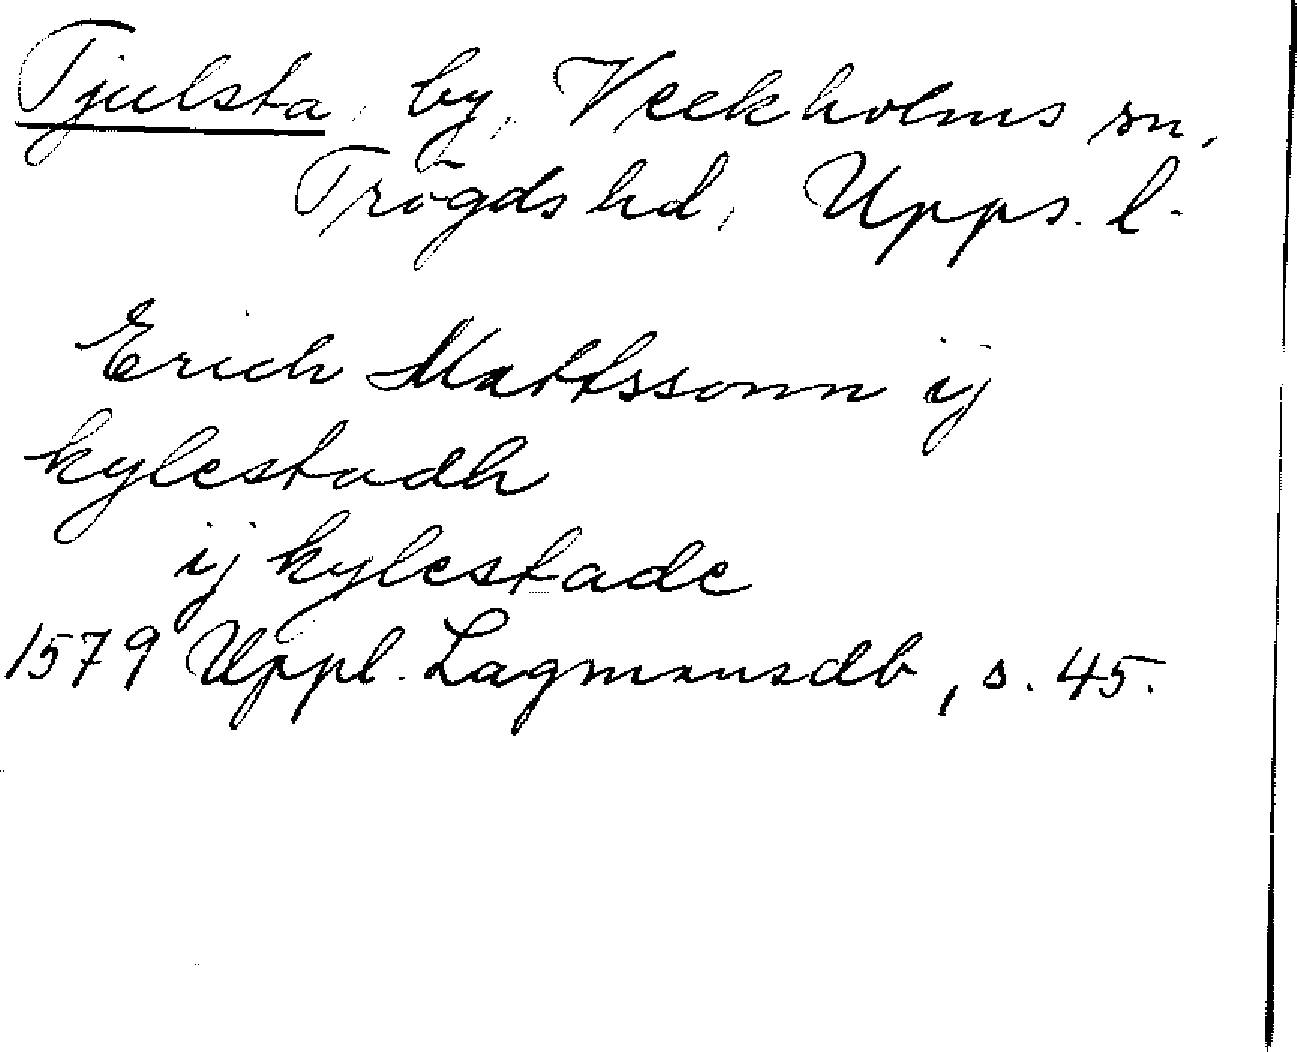 Tjulsta, by, Veckholms sn,
Trögds hd, Upps. l.
Erich Mattssonn ij
kylestadh
ij kylestade
1579 Uppl. Lagmansdb, s. 45.